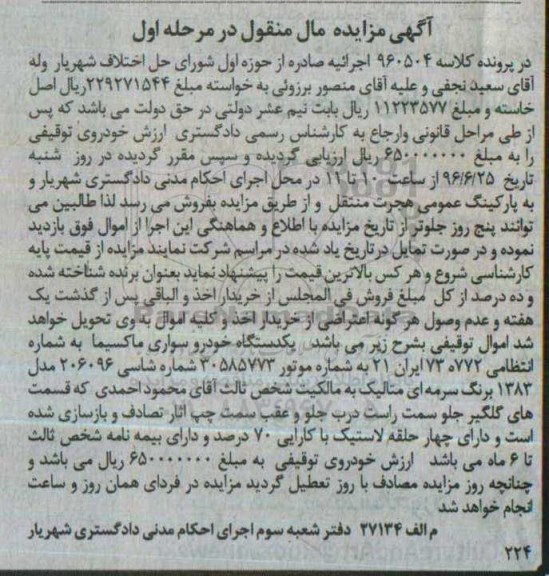 آگهی مزایده مال منقول در مرحله اول
در پرونده کلاسه ۹۶۰۵۰۴ اجرائیه صادره از حوزه اول شورای حل اختلاف شهریار وله
آقای سعید نجفی و علیه آقای منصور برزوئی به خواسته مبلغ ۲۲۹۲۷۱۵۴۴ریال اصل
خاسته و مبلغ ۱۱۲۲۳۵۷۷ ریال بابت نیم عشر دولتی در حق دولت می باشد که پس
از طی مراحل قانونی وارجاع به کارشناس رسمی دادگستری ارزش خودروی توقیفی
را به مبلغ ۶۵۰۰۰۰۰۰۰ ریال ارزیابی گردیده و سپس مقرر گردیده در روز شنبه
تاریخ ۹۶/۶/۲۵ از ساعت ۱۰ تا ۱۱ در محل اجرای احکام مدنی دادگستری شهریار و
به پارکینگ عمومی هجرت منتقل و از طریق مزایده بفروش می رسد لذا طالبین می
توانند پنج روز جلوتر از تاریخ مزایده با اطلاع و هماهنگی این اجرا از اموال فوق بازدید
نموده و در صورت تمایل در تاریخ یاد شده در مراسم شرکت نمایند مزایده از قیمت پایه
کارشناسی شروع و هر کس بالاترین قیمت را پیشنهاد نماید بعنوان برنده شناخته شده
و ده درصد از کل مبلغ فروش فی المجلس از خریدار اخذ و الباقی پس از گذشت یک
هفته و عدم وصول هر گونه اعتراضی از خریدار اخذ و کلیه اموال به وی تحویل خواهد
شد اموال توقیفی بشرح زیر می باشد یکدستگاه خودرو سواری ماکسیما به شماره
انتظامی ۷۷۲ه۷۳ ایران ۲۱ به شماره موتور ۳۰۵۸۵۷۷۳ شماره شاسی ۲۰۶۰۹۶ مدل
۱۳۸۳ برنگ سرمه ای متالیک به مالکیت شخص ثالث آقای محمود احمدی که قسمت
های گلگیر جلو سمت راست درب جلو و عقب سمت چپ اثار تصادف و بازسازی شده
است و دارای چهار حلقه لاستیک با کارایی ۷۰ درصد و دارای بیمه نامه شخص ثالث
تا ۶ ماه می باشد ارزش خودروی توقیفی به مبلغ ۶۵۰۰۰۰۰۰۰ ریال می باشد و
چنانچه روز مزایده مصادف با روز تعطیل گردید مزایده در فردای همان روز و ساعت
انجام خواهد شد
م الف ۲۷۱۳۴ دفتر شعبه سوم اجرای احکام مدنی دادگستری شهریار
۲۲۴